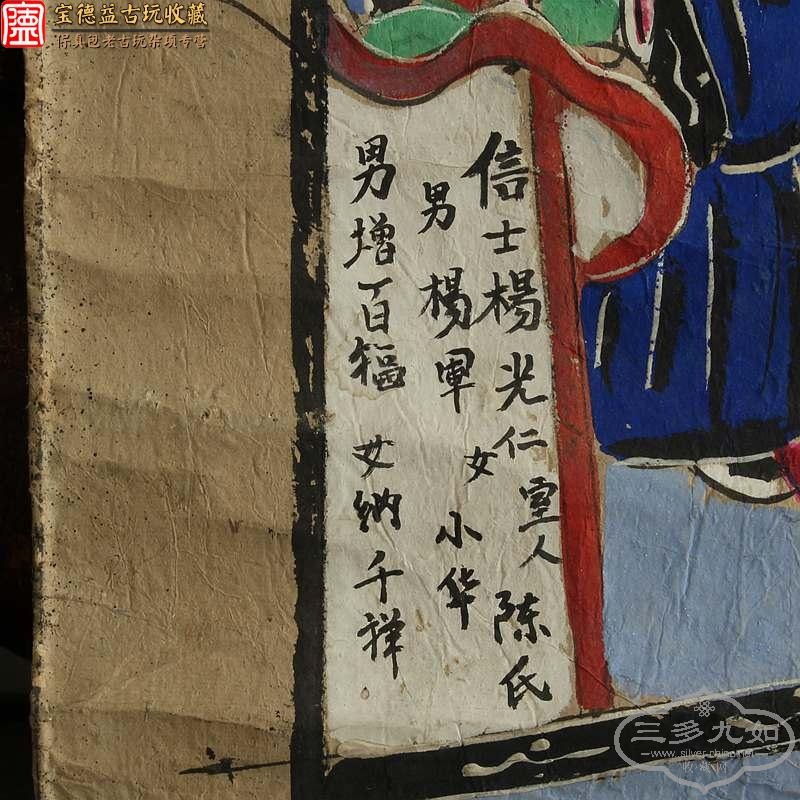 宝德益古玩收藏
保真包老古玩杂项专营
信士楊光仁室人陈氏
男楊軍女小华
男增百福女納千祥
三多九如
www.silver-china.net
收藏网